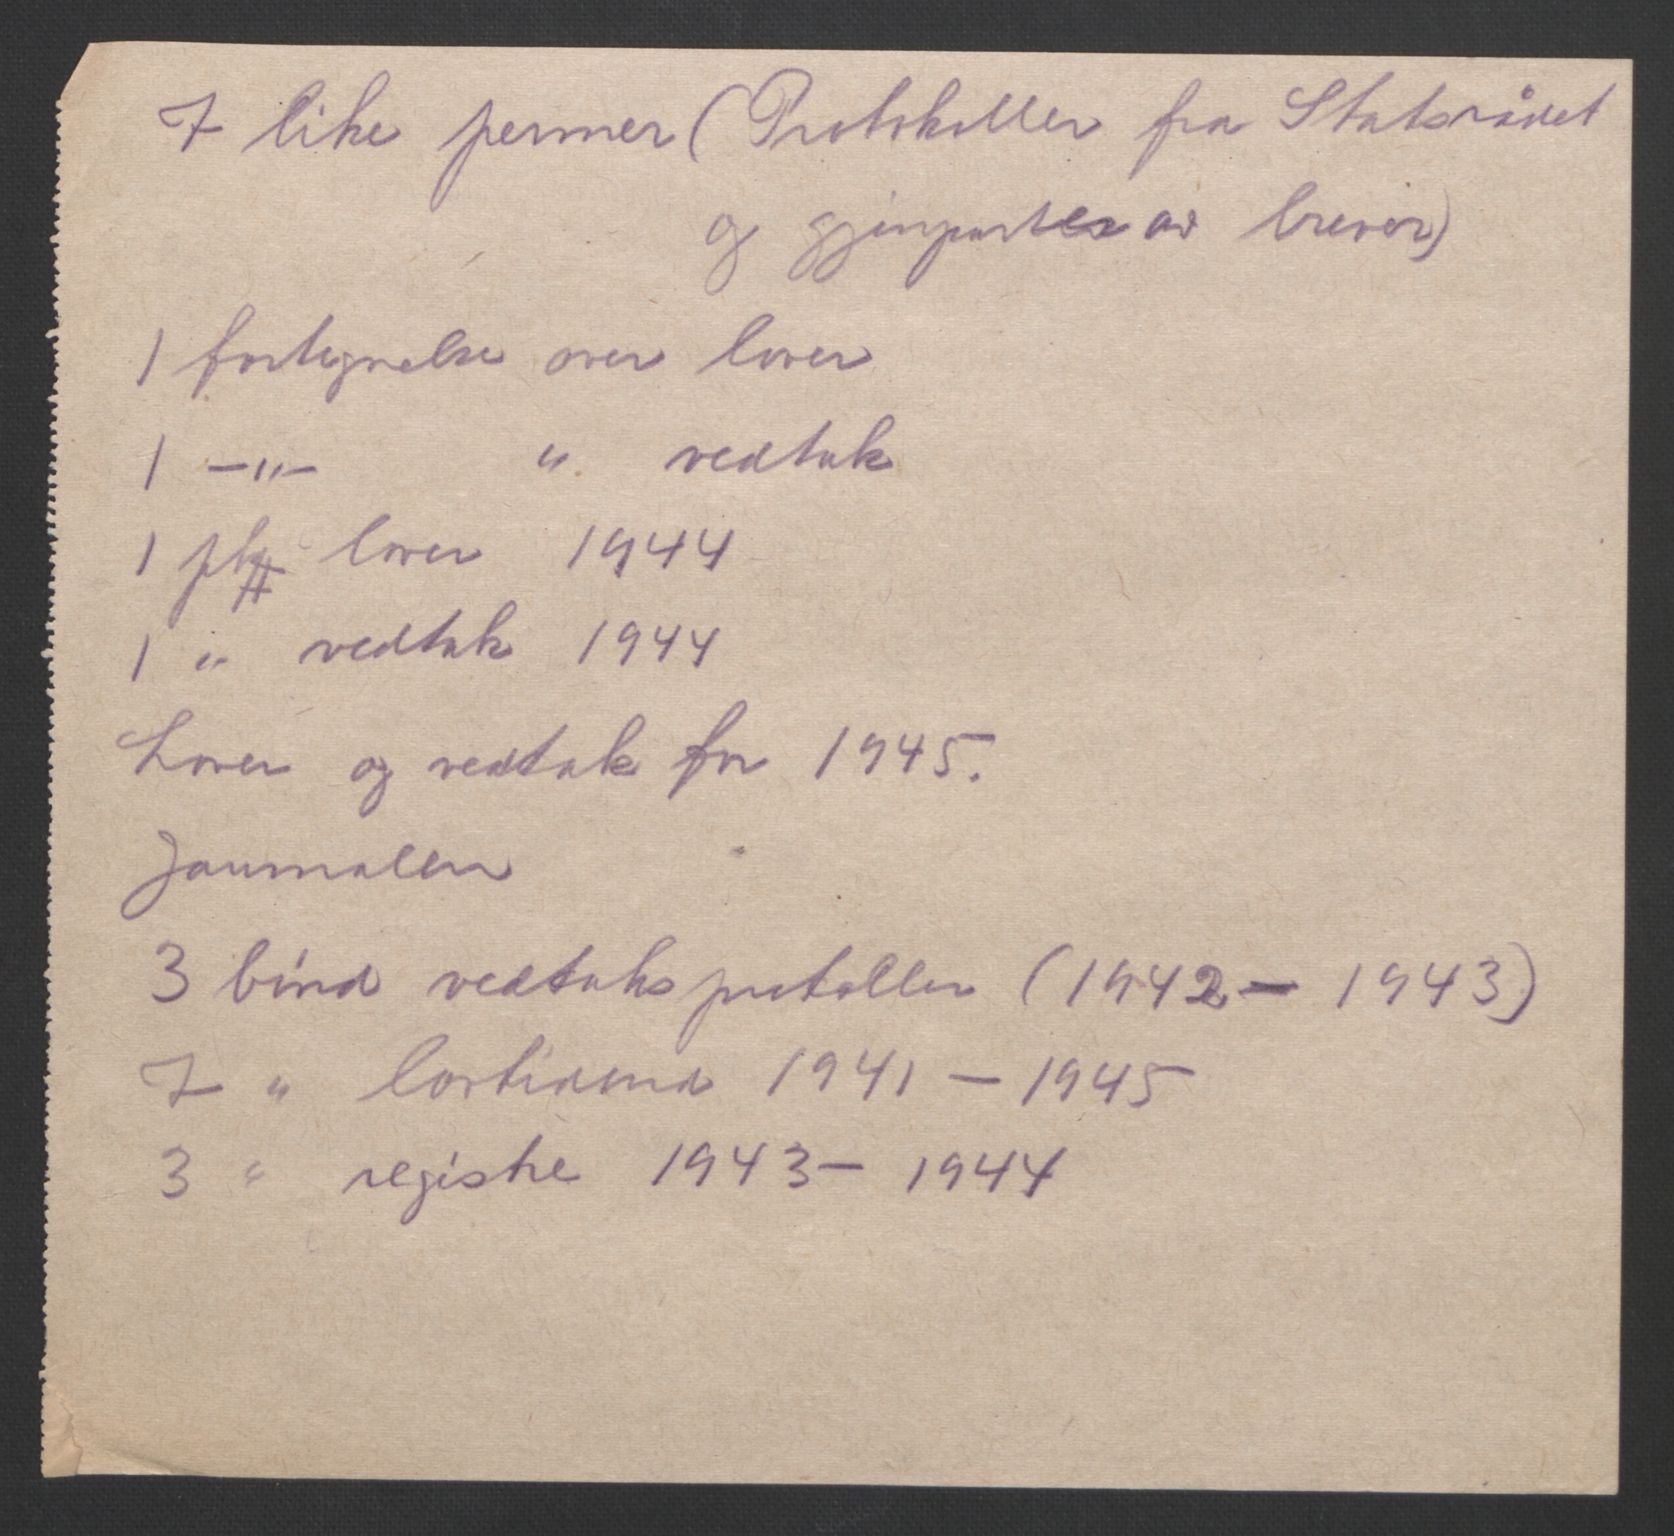 7 like permer (Protokoller fra Statsrådet
og gjenparter av brever)
1 fortegnelse over lover
1 -"- " vedtak
1 pk lover 1944
1 " vedtak 1944
Lover og vedtak for 1945.
Journalen
3 bind vedtaksprotokoller (1942 - 1943)
7 " 1941 - 1945
3 " registre 1943 - 1944